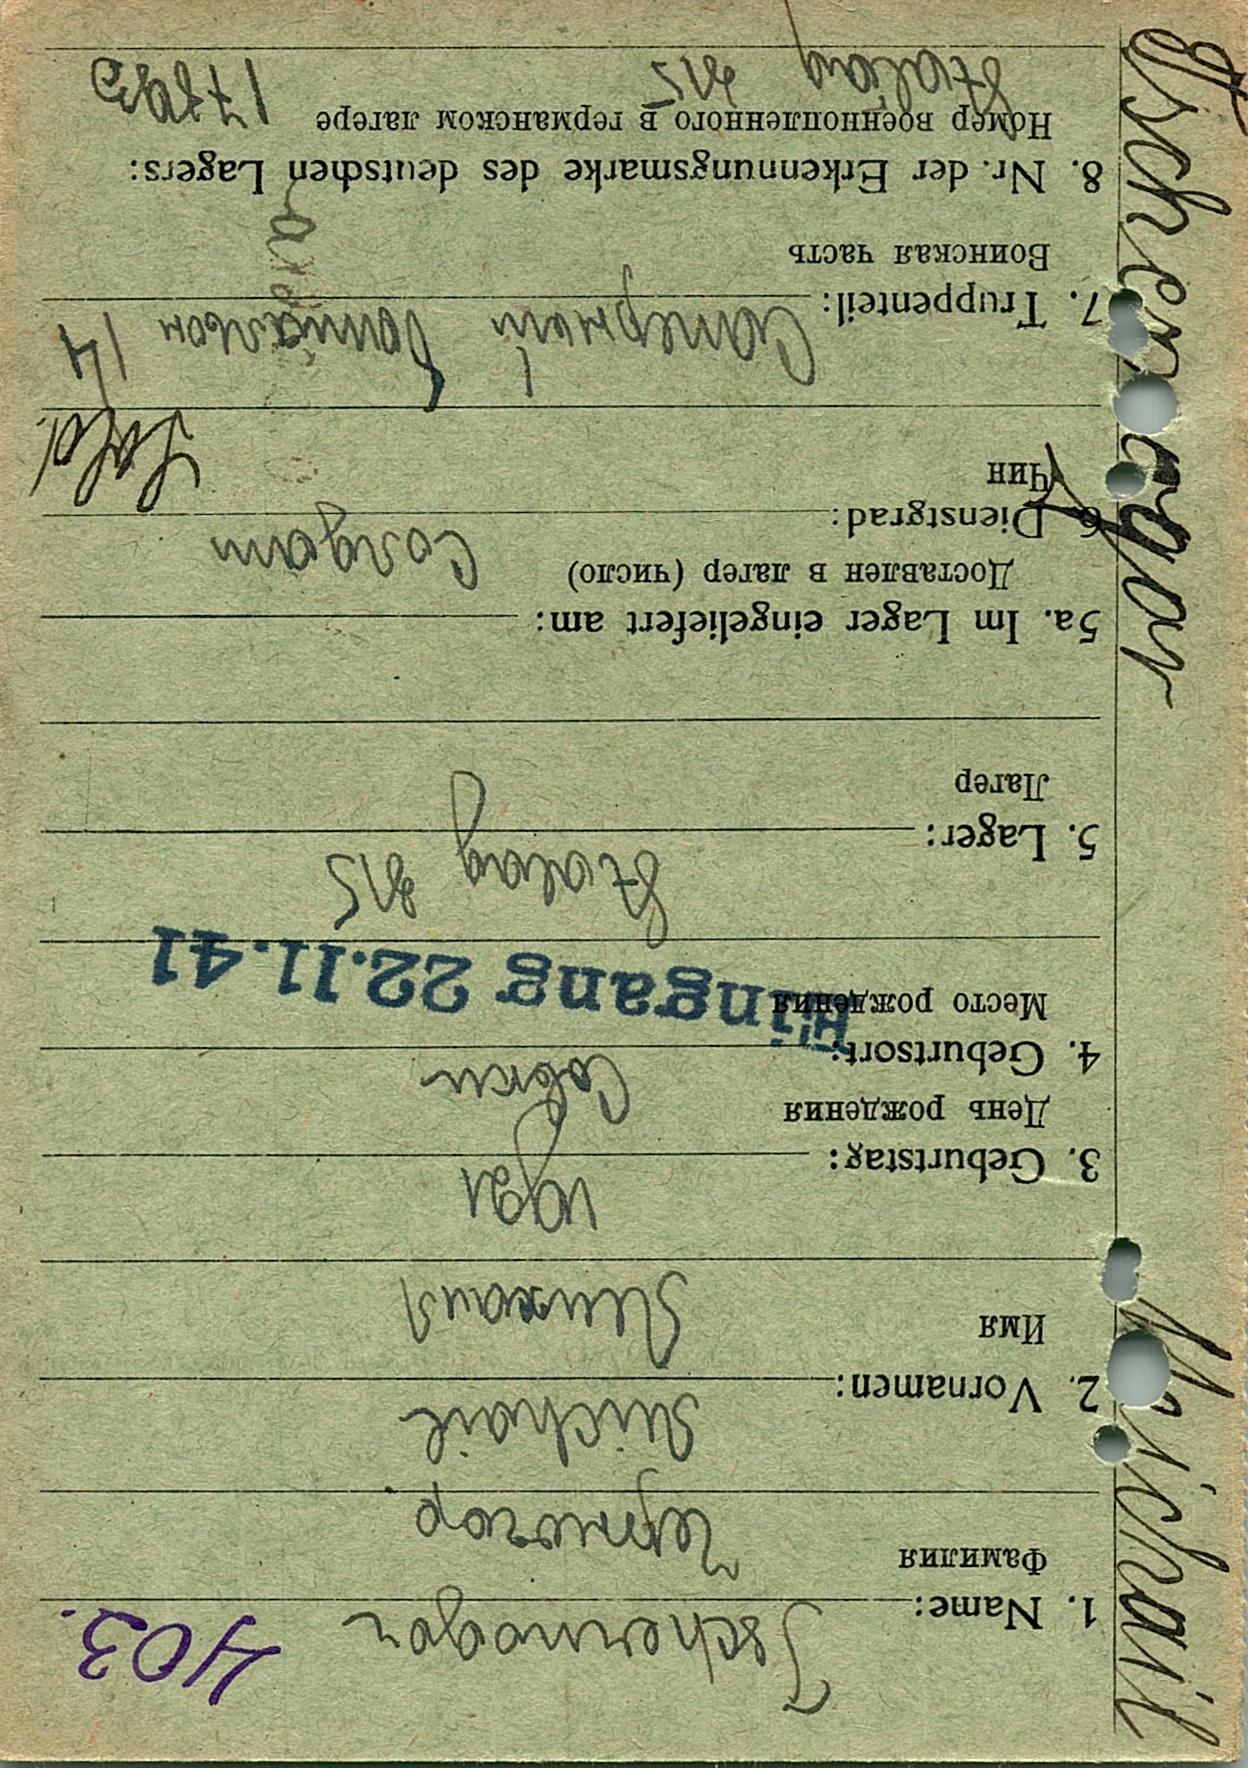 403.
1. Name: Tschernogor
Фамилия Черногор
2. Vornamen: Michail
Имя Михаил
3. Geburtstag: 1921
День рождения
4. Geburtsort:
Место рождения
Eingang 22.11.41
5. Lager: Stalag 315
Лагер
5a. Im Lager eingeliefert am:
Доставлен в лагер (число)
6. Dienstgrad: Солдат
Чин Sold.
7. Truppenteil: Саперный батальон 14
Воинская часть
8. Nr. der Erkennungsmarke des deutschen Lagers:
Номер военнопленного в германском лагере
Stalag 315
Tschernogor Michail